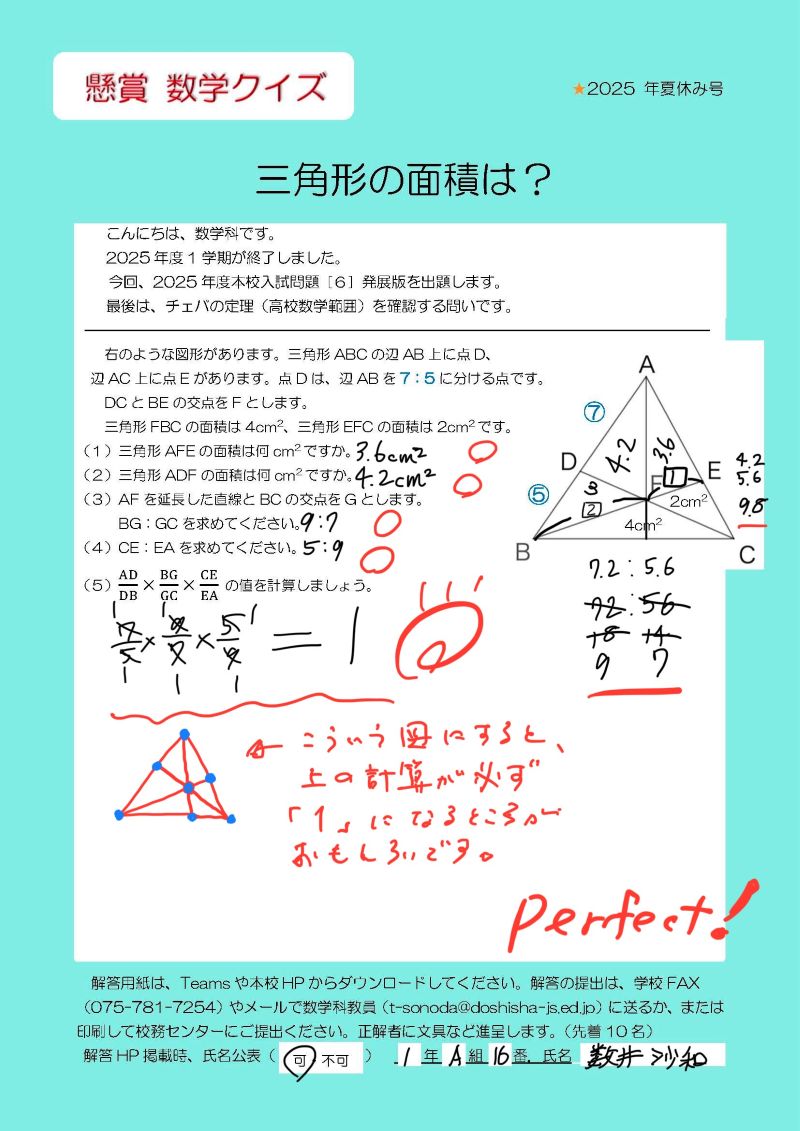 懸賞 数学クイズ
★2025 年夏休み号
三角形の面積は？
こんにちは、数学科です。
2025年度1学期が終了しました。
今回、2025年度本校入試問題［6］発展版を出題します。
最後は、チェバの定理（高校数学範囲）を確認する問いです。
右のような図形があります。三角形ABCの辺AB上に点D、
辺AC上に点Eがあります。点Dは、辺ABを7：5に分ける点です。
DCとBEの交点をFとします。
三角形FBCの面積は4cm²、三角形EFCの面積は2cm²です。
（1）三角形AFEの面積は何cm²ですか。3.6cm²
（2）三角形ADFの面積は何cm²ですか。4.2cm²
（3）AFを延長した直線とBCの交点をGとします。
BG：GCを求めてください。9:7
（4）CE：EAを求めてください。5:9
（5）AD/DB×BG/GC×CE/EA の値を計算しましょう。
A
⑦
4.2
3.6
D
E
F
1
⑤
3
2
2cm²
4cm²
B
C
4.2
5.6
9.8
7.2:5.6
72:56
18 14
9 7
1 1 1
7/5×9/7×5/9=1
1 1 1
← こういう図にすると、
上の計算が必ず
「1」になるところが
おもしろいです。
Perfect!
解答用紙は、Teamsや本校HPからダウンロードしてください。解答の提出は、学校FAX
（075-781-7254）やメールで数学科教員（t-sonoda@doshisha-js.ed.jp）に送るか、または
印刷して校務センターにご提出ください。正解者に文具など進呈します。（先着10名）
解答HP掲載時、氏名公表（ 可・不可 ） 1年A組16番．氏名 数井沙和